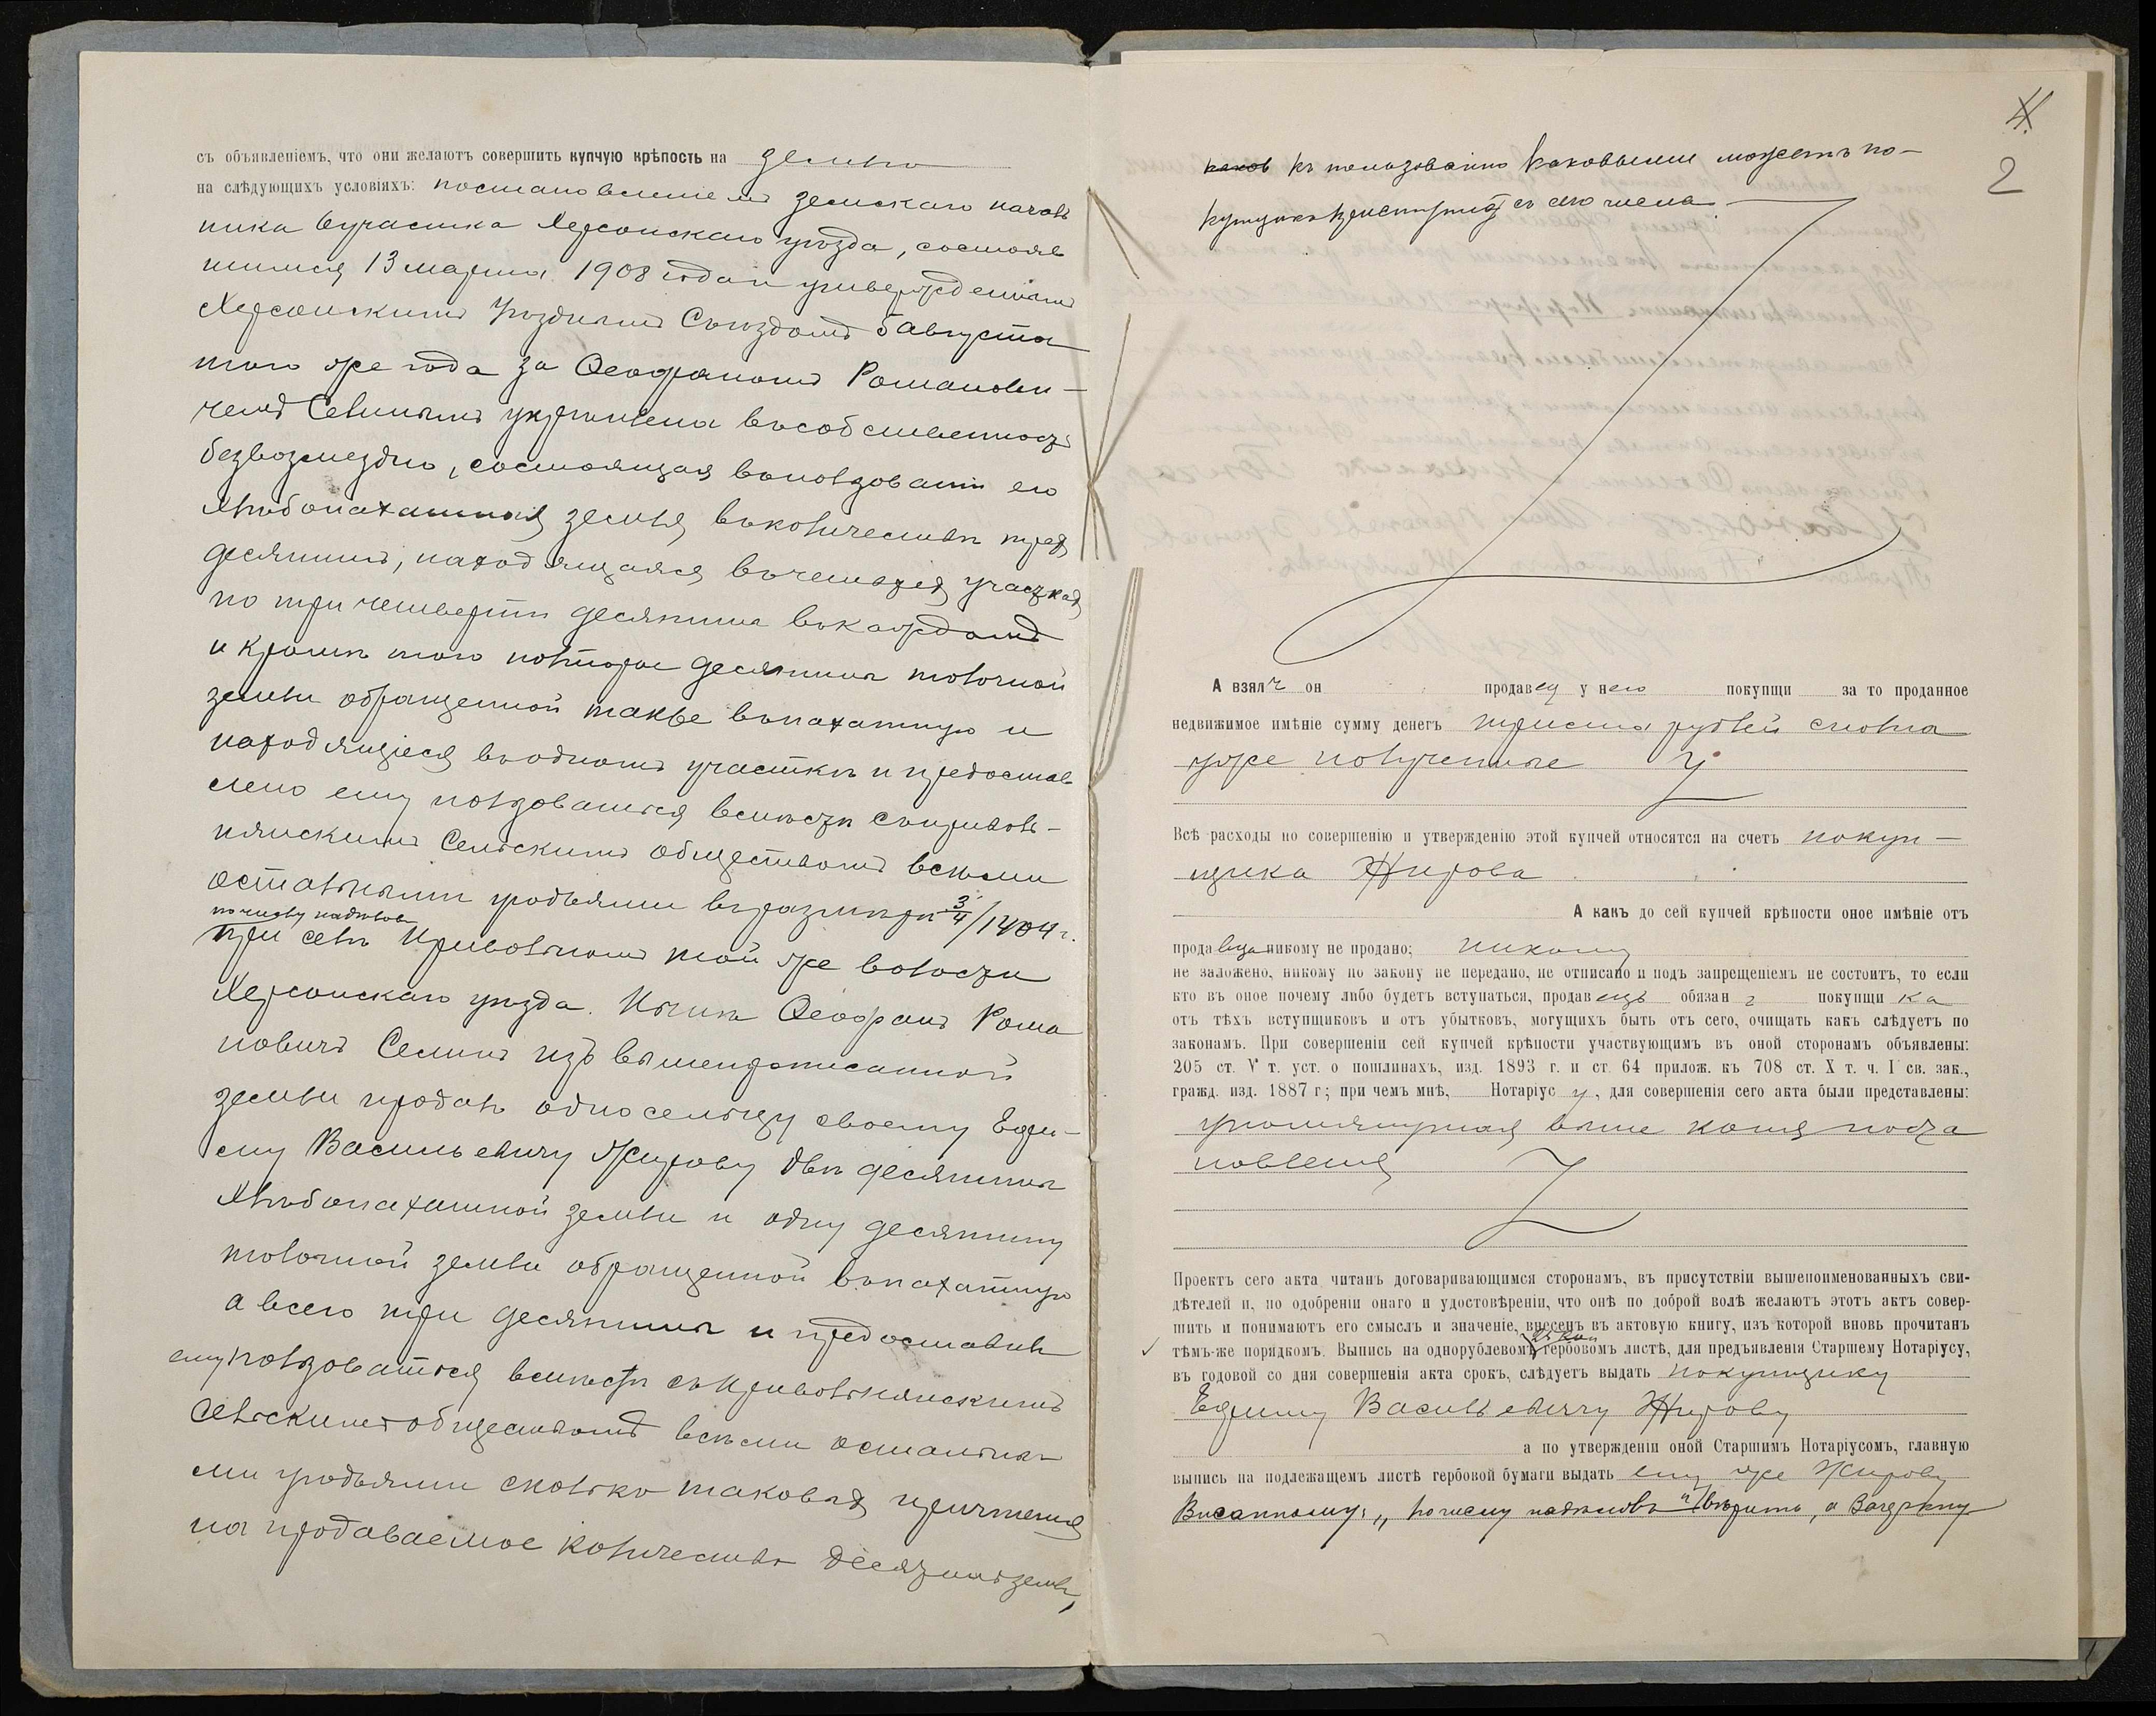 съ объявленіемъ, что они желаютъ совершить купчую крѣпость на землю
на слѣдующихъ условіяхъ: постановленіемъ земскаго началь
ника 6 участка Херсонскаго уѣзда, состояв
шимся 13 марта 1908 года и утвержденнымъ
Херсонскимъ Уѣзднымъ Съѣздомъ 5 августа
того же года за Ѳеофаномъ Романови-
чемъ Семинымъ укрѣплена въ собственность
безвозмездно, состоящая въ пользованіи его
хлѣбопахатная земля въ количествѣ трехъ
десятинъ, находящаяся въ четырехъ участкахъ
по три четверти десятины въ каждомъ
и кромѣ того полторы десятины толочной
земли обращенной также въ пахатную и
находящіеся въ одномъ участкѣ и предостав
лено ему пользоваться вмѣстѣ съ Криволь-
нянскимъ Сельскимъ обществомъ всѣми
остальными угодьями въ размѣрѣ 3/4/1404 г.
по числу надѣловъ
при селѣ Кривольномъ той же волости
Херсонскаго уѣзда. Нынѣ Ѳеофанъ Рома
новичъ Семинъ изъ вышеописанной
земли продалъ односельцу своему Ефи-
му Васильевичу Жирову двѣ десятины
хлѣбопахатной земли и одну десятину
толочной земли обращенной въ пахатную
а всего три десятины и предоставилъ
ему пользоваться вмѣстѣ съ Кривольнянскимъ
Сельскимъ обществомъ всѣми остальны
ми угодьями сколько таковыхъ причтется
на продаваемое количество десятинъ земли,
4
2
каков къ пользованію каковыми можетъ по-
купщикъ вступить съ сего числа.
А взялъ онъ продавецъ у него покупщи за то проданное
недвижимое имѣніе сумму денегъ триста рублей сполна
уже полученные
Всѣ расходы по совершенію и утвержденію этой купчей относятся на счетъ покуп-
щика Жирова
А какъ до сей купчей крѣпости оное имѣніе отъ
продавца никому не продано; никому
не заложено, никому по закону не передано, не отписано и подъ запрещеніемъ не состоитъ, то если
кто въ оное почему либо будетъ вступаться, продавецъ обязанъ покупщика
отъ тѣхъ вступщиковъ и отъ убытковъ, могущихъ быть отъ сего, очищать какъ слѣдуетъ по
законамъ. При совершеніи сей купчей крѣпости участвующимъ въ оной сторонамъ объявлены:
205 ст. V т. уст. о пошлинахъ, изд. 1893 г. и ст. 64 прилож. къ 708 ст. X т. ч. I св. зак.,
гражд. изд. 1887 г; при чемъ мнѣ, Нотаріусу, для совершенія сего акта были представлены:
упомянутая выше копія поста
новленія
Проектъ сего акта читанъ договаривающимся сторонамъ, въ присутствіи вышепоименованныхъ сви-
дѣтелей и, по одобреніи онаго и удостовѣреніи, что онѣ по доброй волѣ желаютъ этотъ актъ совер-
шить и понимаютъ его смыслъ и значеніе, внесенъ въ актовую книгу, изъ которой вновь прочитанъ
25 коп
тѣмъ-же порядкомъ. Выпись на однорублевомъ гербовомъ листѣ, для предъявленія Старшему Нотаріусу,
въ годовой со дня совершенія акта срокъ, слѣдуетъ выдать покупщику
Ефиму Васильевичу Жирову
а по утвержденіи оной Старшимъ Нотаріусомъ, главную
выпись на подлежащемъ листѣ гербовой бумаги выдать ему же Жирову
Вписанному: „по числу надѣловъ" вѣрить, а зачеркну